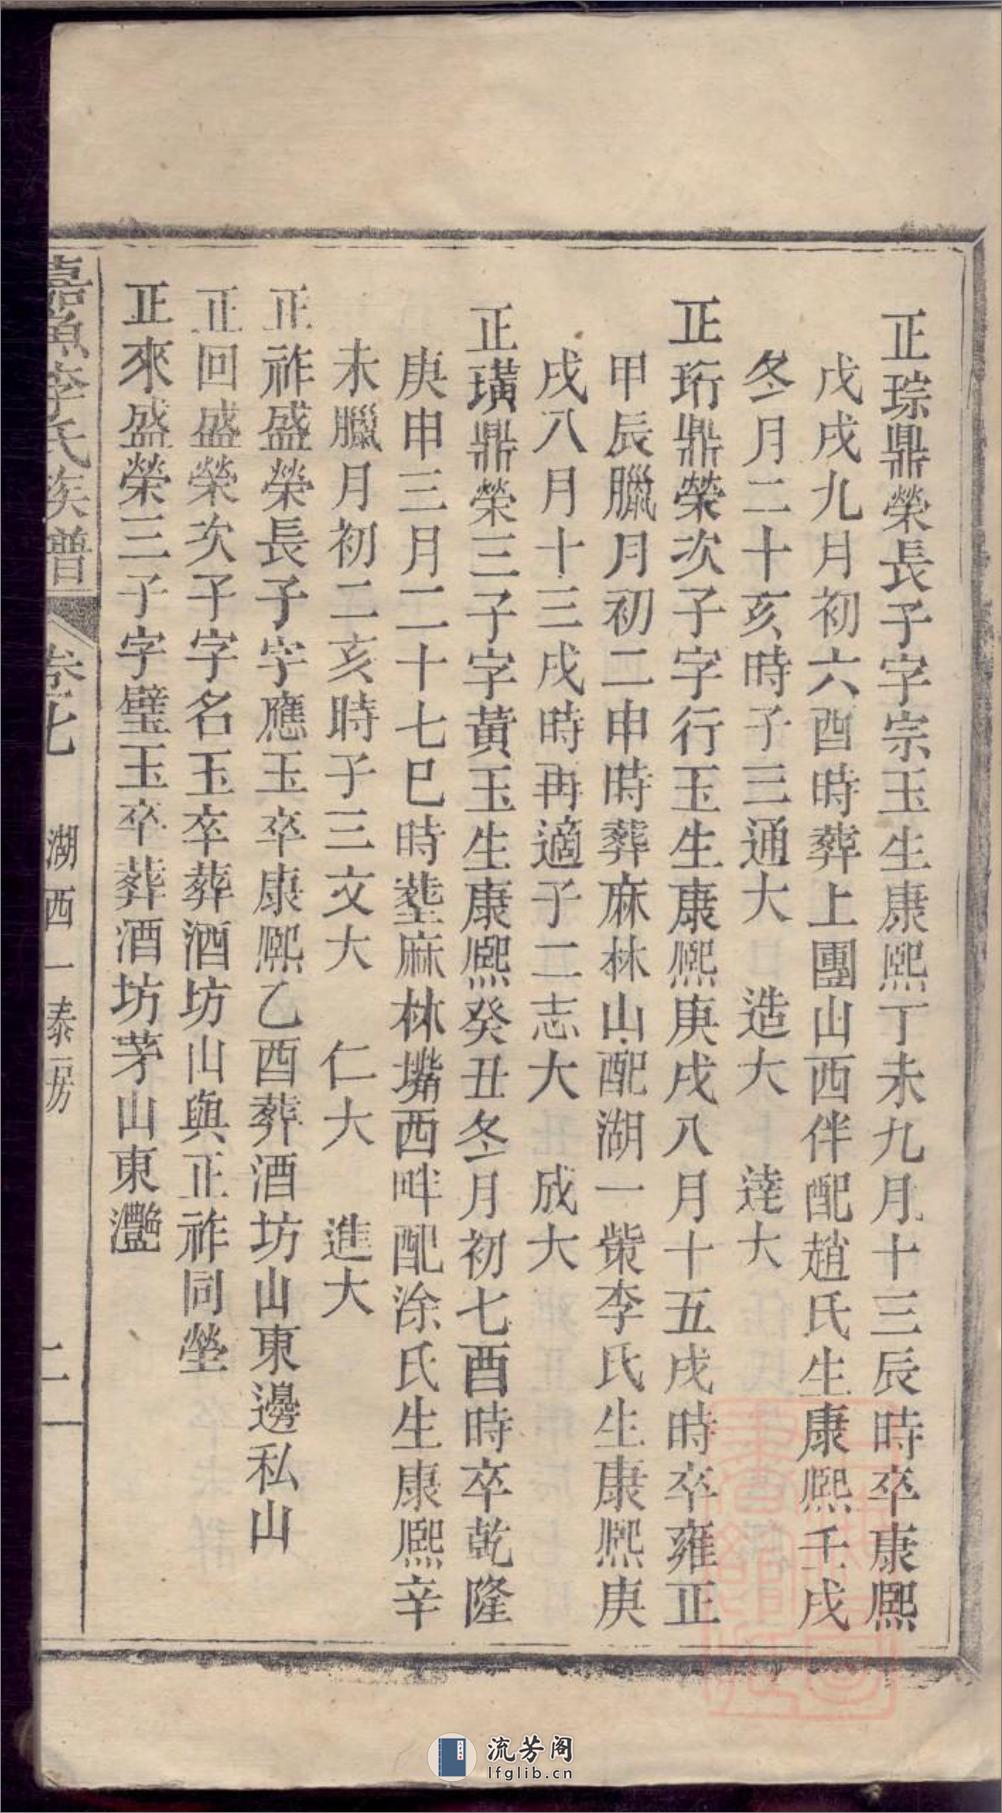 正琮鼎榮長子字宗玉生康熙丁未九月十三辰時卒康熙
戊戌九月初六酉時葬上團山西伴配趙氏生康熙壬戌
冬月二十亥時子三通大 造大 達大
正珩鼎榮次子字行玉生康熙庚戌八月十五戌時卒雍正
甲辰臘月初二申時葬麻林山配湖一柴李氏生康熙庚
戌八月十三戌時再適子二志大 成大
正璜鼎榮三子字黃玉生康熙癸丑冬月初七酉時卒乾隆
庚申三月二十七巳時塟麻林嘴西畔配涂氏生康熙辛
未臘月初二亥時子三文大 仁大 進大
正祚盛榮長子字應玉卒康熙乙酉葬酒坊山東邊私山
正回盛榮次子字名玉卒葬酒坊山與正祚同塋
正來盛榮三子字璧玉卒葬酒坊茅山東灔
嘉魚李氏族譜 卷七 湖西一泰房 二
流芳阁
lfglib.cn